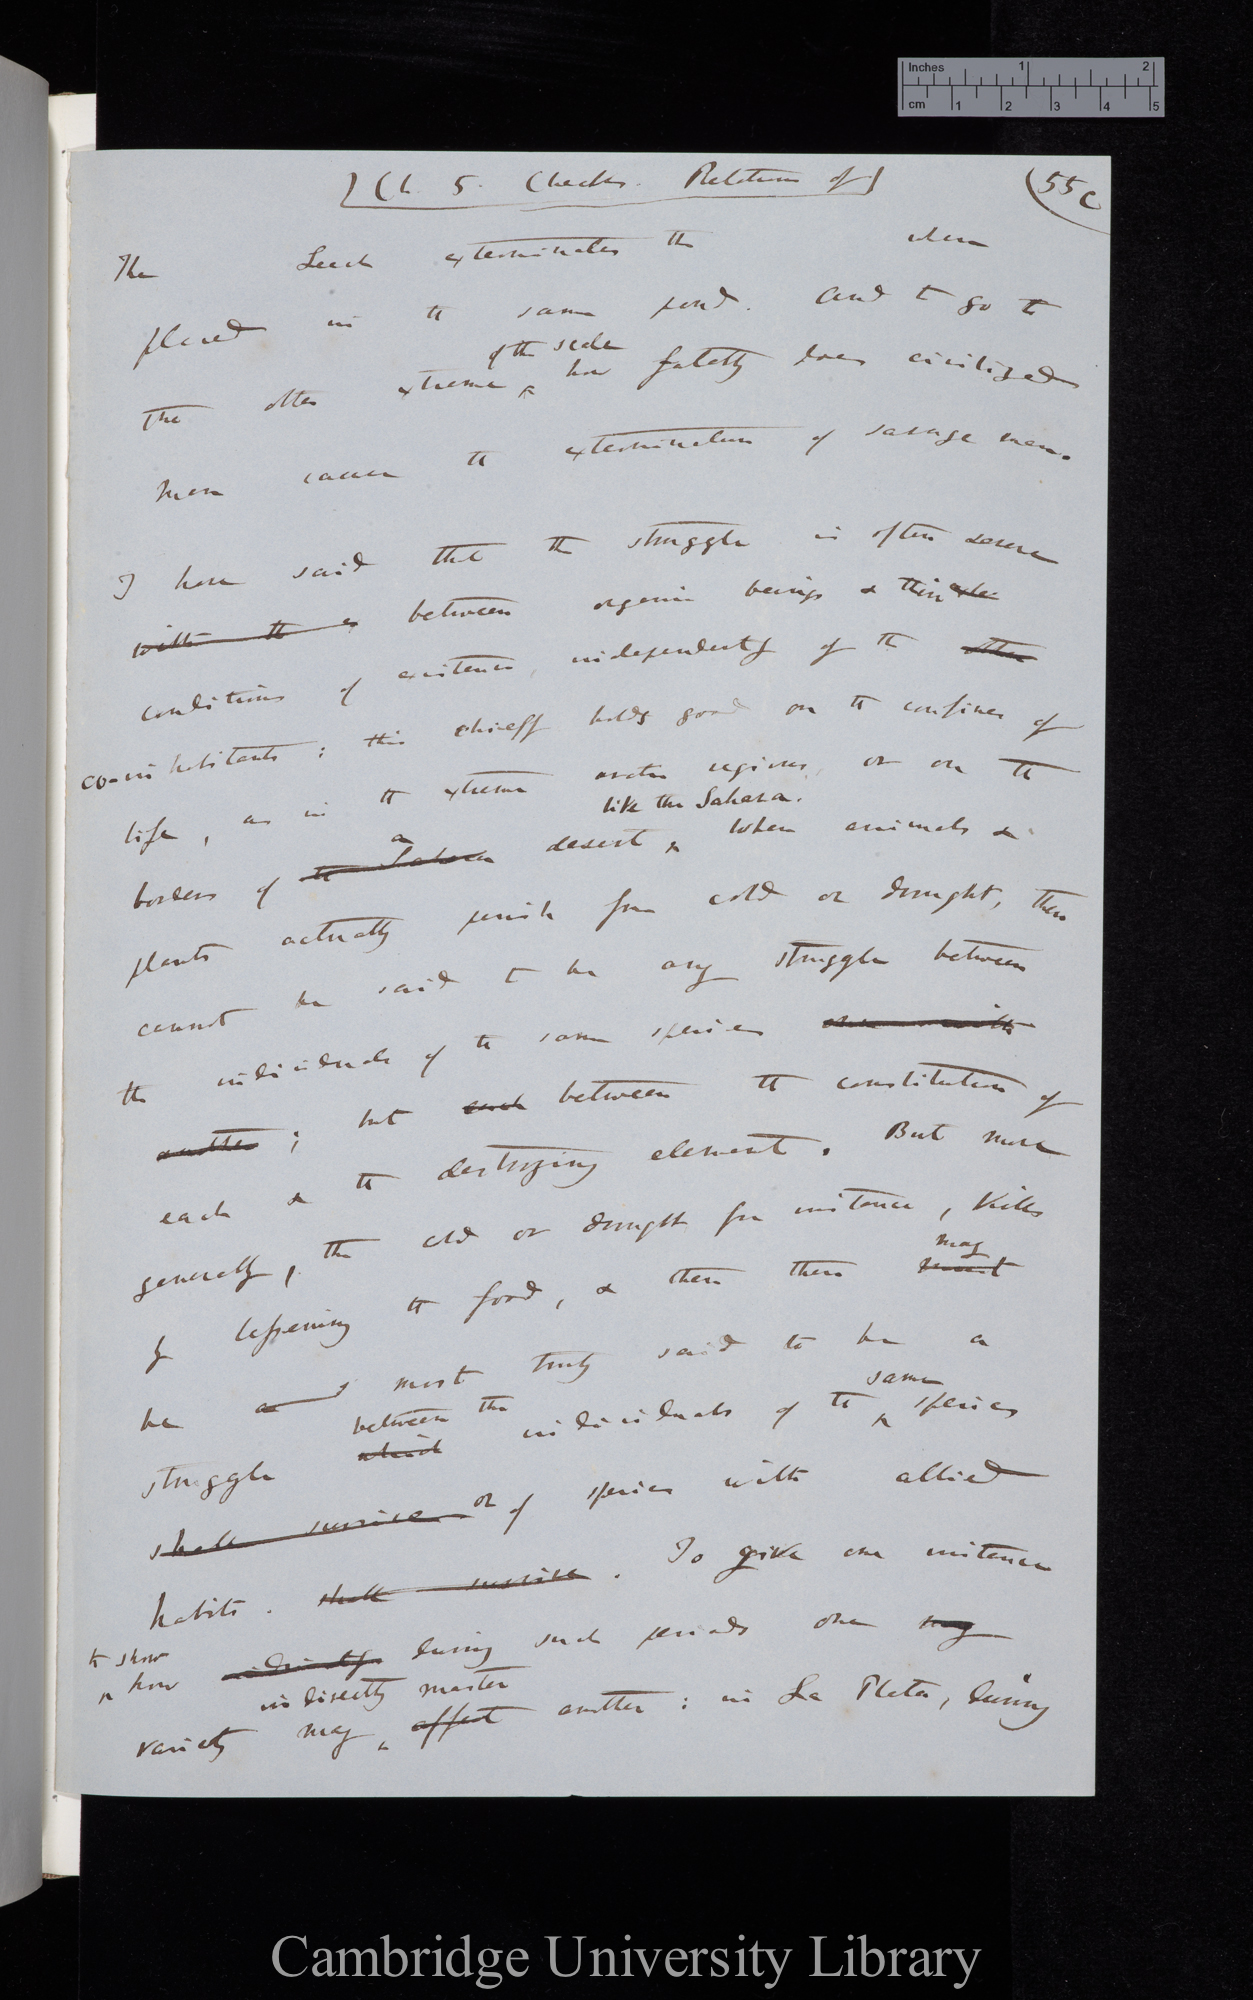 Inches 1 2
cm 1 2 3 4 5
[Ch. 5. Checks. Relations of]
55 c
The Leech exterminates the when
placed in the same pond. And to go to
of the scale
the other extreme ^ how fatally does civilized
man cause the extermination of savage man.
I have said that the struggle is often severe
with the between organic beings & their
conditions of existence, independently of the other
co-inhabitants; this chiefly holds good on the confines of
life, as in the extreme arctic regions, or on the
a like the Sahara.
borders of the Sahara desert ^ When animals &
plants actually perish from cold or drought, there
cannot be said to be any struggle between
the individuals of the same species
another; but each between the constitution of
each & the destroying element. But more
generally, the cold or drought for instance, kills
may
by lessening the food, & then there must
be a most truly said to be a
between the same
struggle which individuals of the ^ species
shall survive or of species with allied
habits. shall survive. To give one instance
to show
^ how indirectly during such periods one may
indirectly master
variety may ^ affect another: in La Plata, during
Cambridge University Library